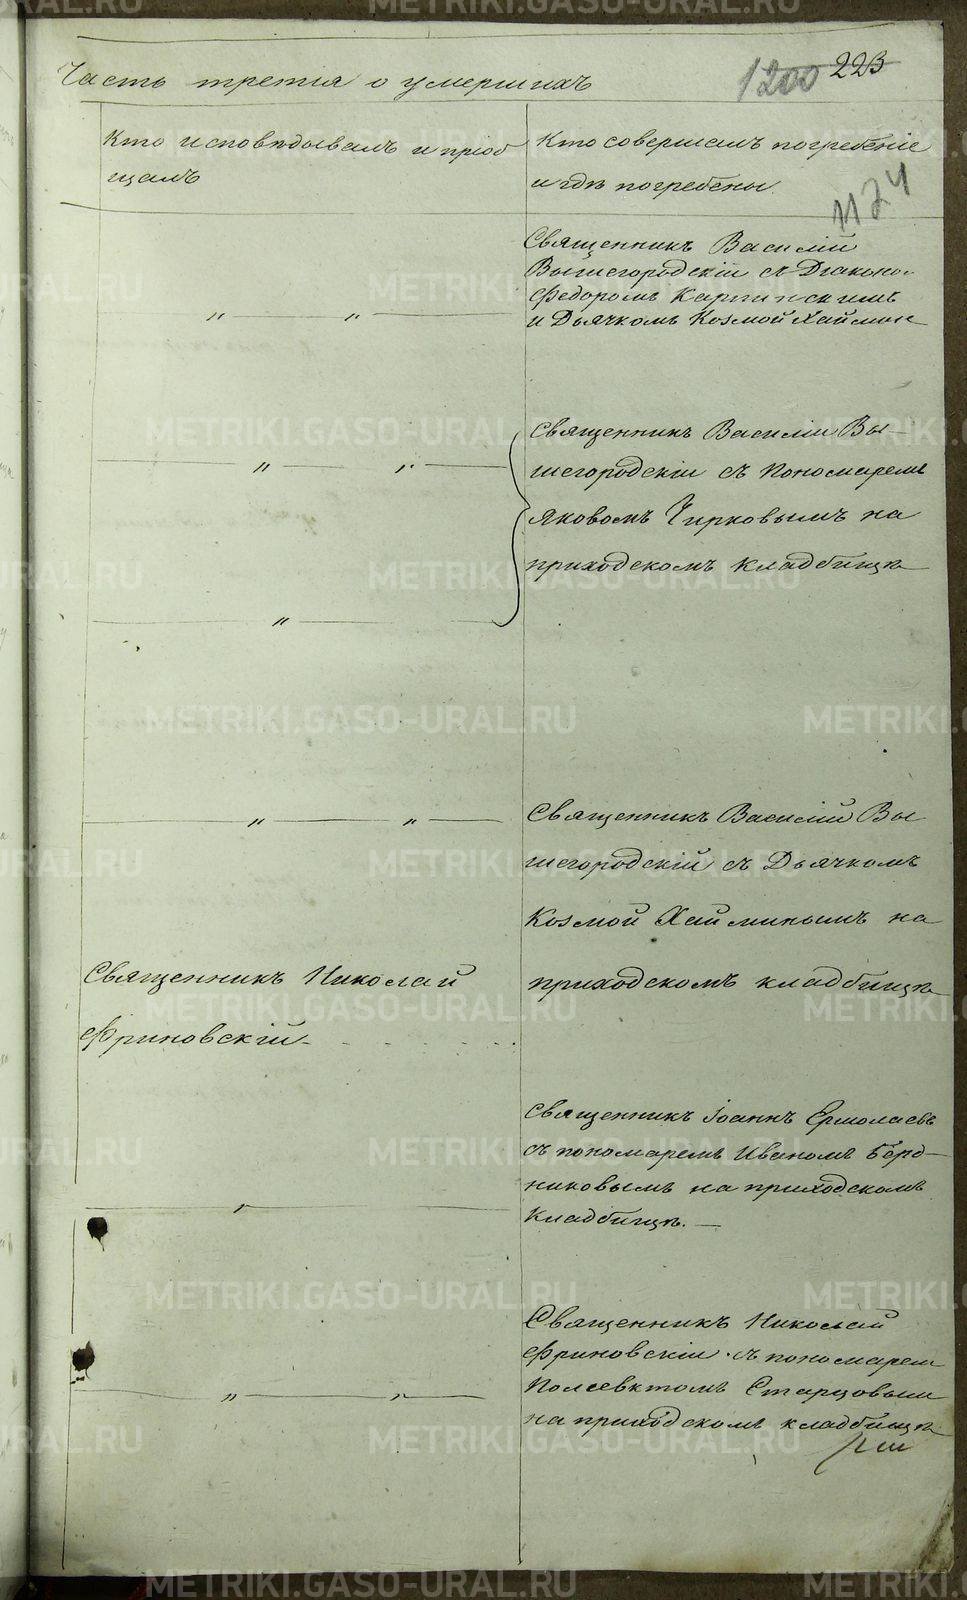 Часть третія о умершихъ
1200 223
Кто исповѣдывалъ и пріоб
щалъ
Кто совершалъ погребеніе
и гдѣ погребены.
1124
Священникъ Василій
Вышегородскій съ Діаконо.
Федоромъ Карпинскимъ
и Дьячкомъ Козмой Хаймин
Священникъ Василій Вы-
шегородскій съ Пономаремъ
Яковомъ Чирковымъ на
приходскомъ кладбищѣ
Священникъ Василій Вы
шегородскій съ Дьячкомъ
Козмой Хайминымъ на
приходскомъ кладбищѣ
Священникъ Николай
Фриновскій
Священникъ Іоаннъ Ермолаевъ
съ пономаремъ Иваномъ Берд-
никовымъ на приходскомъ
кладбищѣ.
Священникъ Николай
Фриновскій съ пономарем
Полиевктомъ Старцовым
на приходскомъ кладбищѣ
METRIKI.GASO-URAL.RU